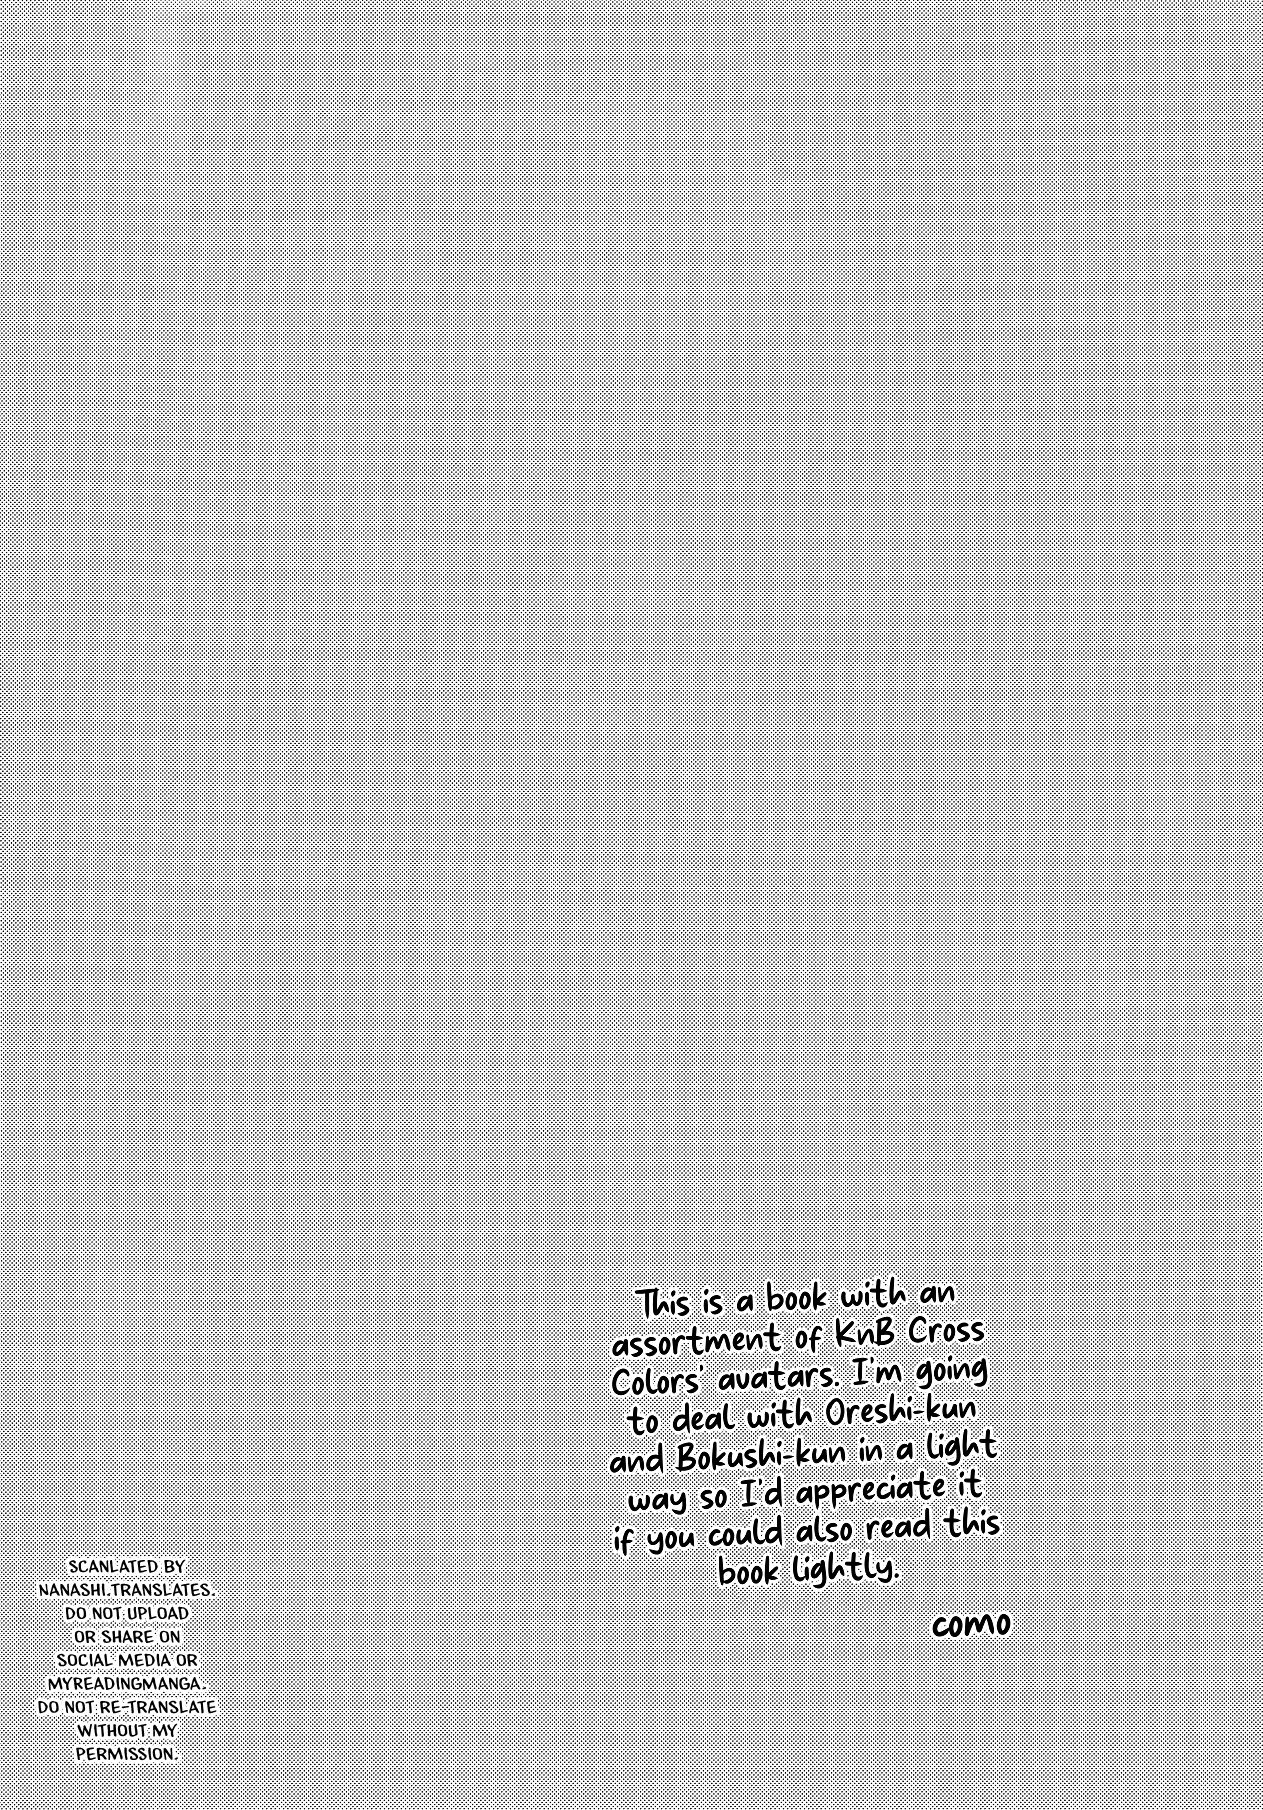 This is a book with an
assortment of KnB Cross
Colors' avatars. I'm going
to deal with Oreshi-kun
and Bokushi-kun in a light
way so I'd appreciate it
if you could also read this
book lightly.
como
SCANLATED BY
NANASHI.TRANSLATES.
DO NOT UPLOAD
OR SHARE ON
SOCIAL MEDIA OR
MYREADINGMANGA.
DO NOT RE-TRANSLATE
WITHOUT MY
PERMISSION.